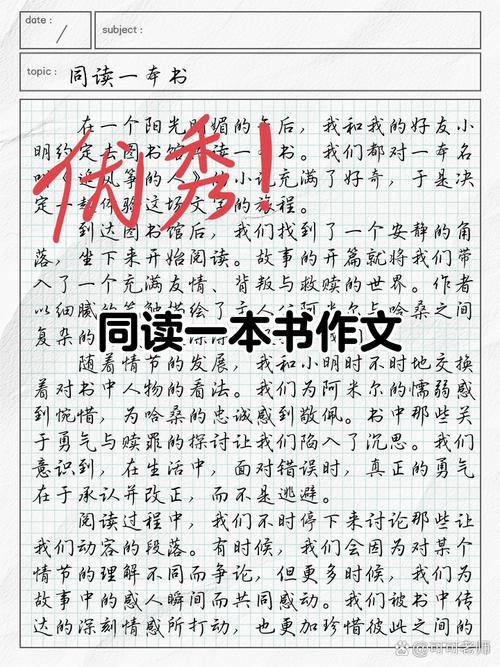 date:
subject:
topic: 同读一本书
在一个阳光明媚的午后，我和我的好友小
明约定去图书馆共读一本书。我们都对一本名
叫《追风筝的人》的小说充满了好奇，于是决
定一起体验这场文字的旅程。
优秀！
到达图书馆后，我们找到了一个安静的角
落，坐下来开始阅读。故事的开篇就将我们带
入了一个充满友情、背叛与救赎的世界。作者
以细腻的笔触描绘了主人公阿米尔与哈桑之间
复杂的
同读一本书作文
随着情节的发展，我和小明时不时地交换
着对书中人物的看法。我们为阿米尔的懦弱感
到惋惜，为哈桑的忠诚感到敬佩。书中那些关
于勇气与赎罪的探讨让我们陷入了沉思。我们
意识到，在生活中，面对错误时，真正的勇气
在于承认并改正，而不是逃避。
阅读过程中，我们不时停下来讨论那些让
我们动容的段落。有时候，我们会因为对某个
情节的理解不同而争论，但更多时候，我们为
故事中的感人瞬间而共同感动。我们被书中传
达的深刻情感所打动，也更加珍惜彼此之间的
可可老师